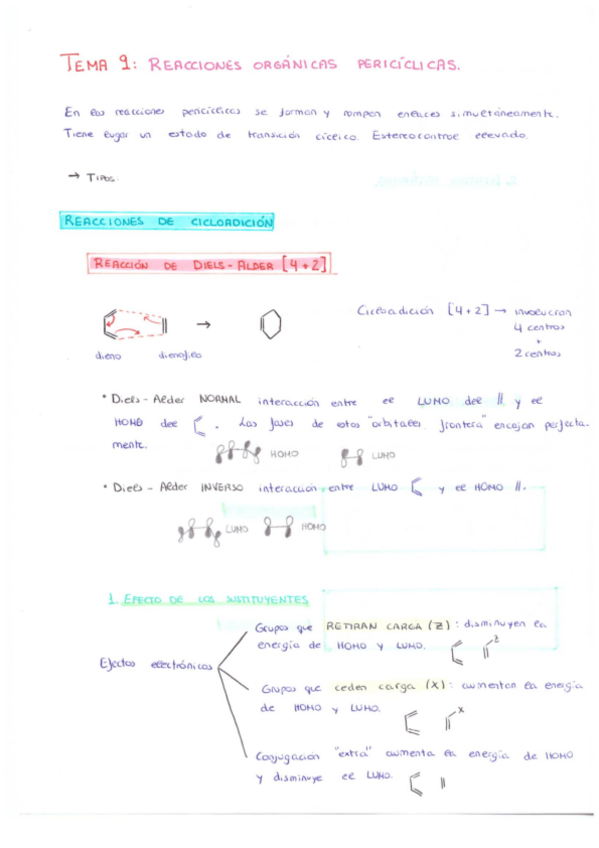 TEMA 9: REACCIONES ORGÁNICAS PERICÍCLICAS.
En las reacciones pericíclicas se forman y rompen enlaces simultáneamente.
Tiene lugar un estado de transición cíclico. Estereocontrol elevado.
→ TIPOS:
REACCIONES DE CICLOADICIÓN
REACCIÓN DE DIELS-ALDER [4+2]
Cicloadición [4+2] → involucran
4 centros
+
2 centros
dieno dienofilo
• Diels-Alder NORMAL interacción entre el LUMO del || y el
HOMO del . Las fases de estos "orbitales frontera" encajan perfecta-
mente.
HOMO LUMO
• Diels-Alder INVERSO interacción entre LUMO y el HOMO ||.
LUMO HOMO
1. EFECTO DE LOS SUSTITUYENTES
Grupos que RETIRAN CARGA (Z): disminuyen la
energía de HOMO y LUMO.
Z
Efectos electrónicos
Grupos que ceden carga (X): aumentan la energía
de HOMO y LUMO.
X
Conjugación "extra" aumenta la energía de HOMO
y disminuye el LUMO.